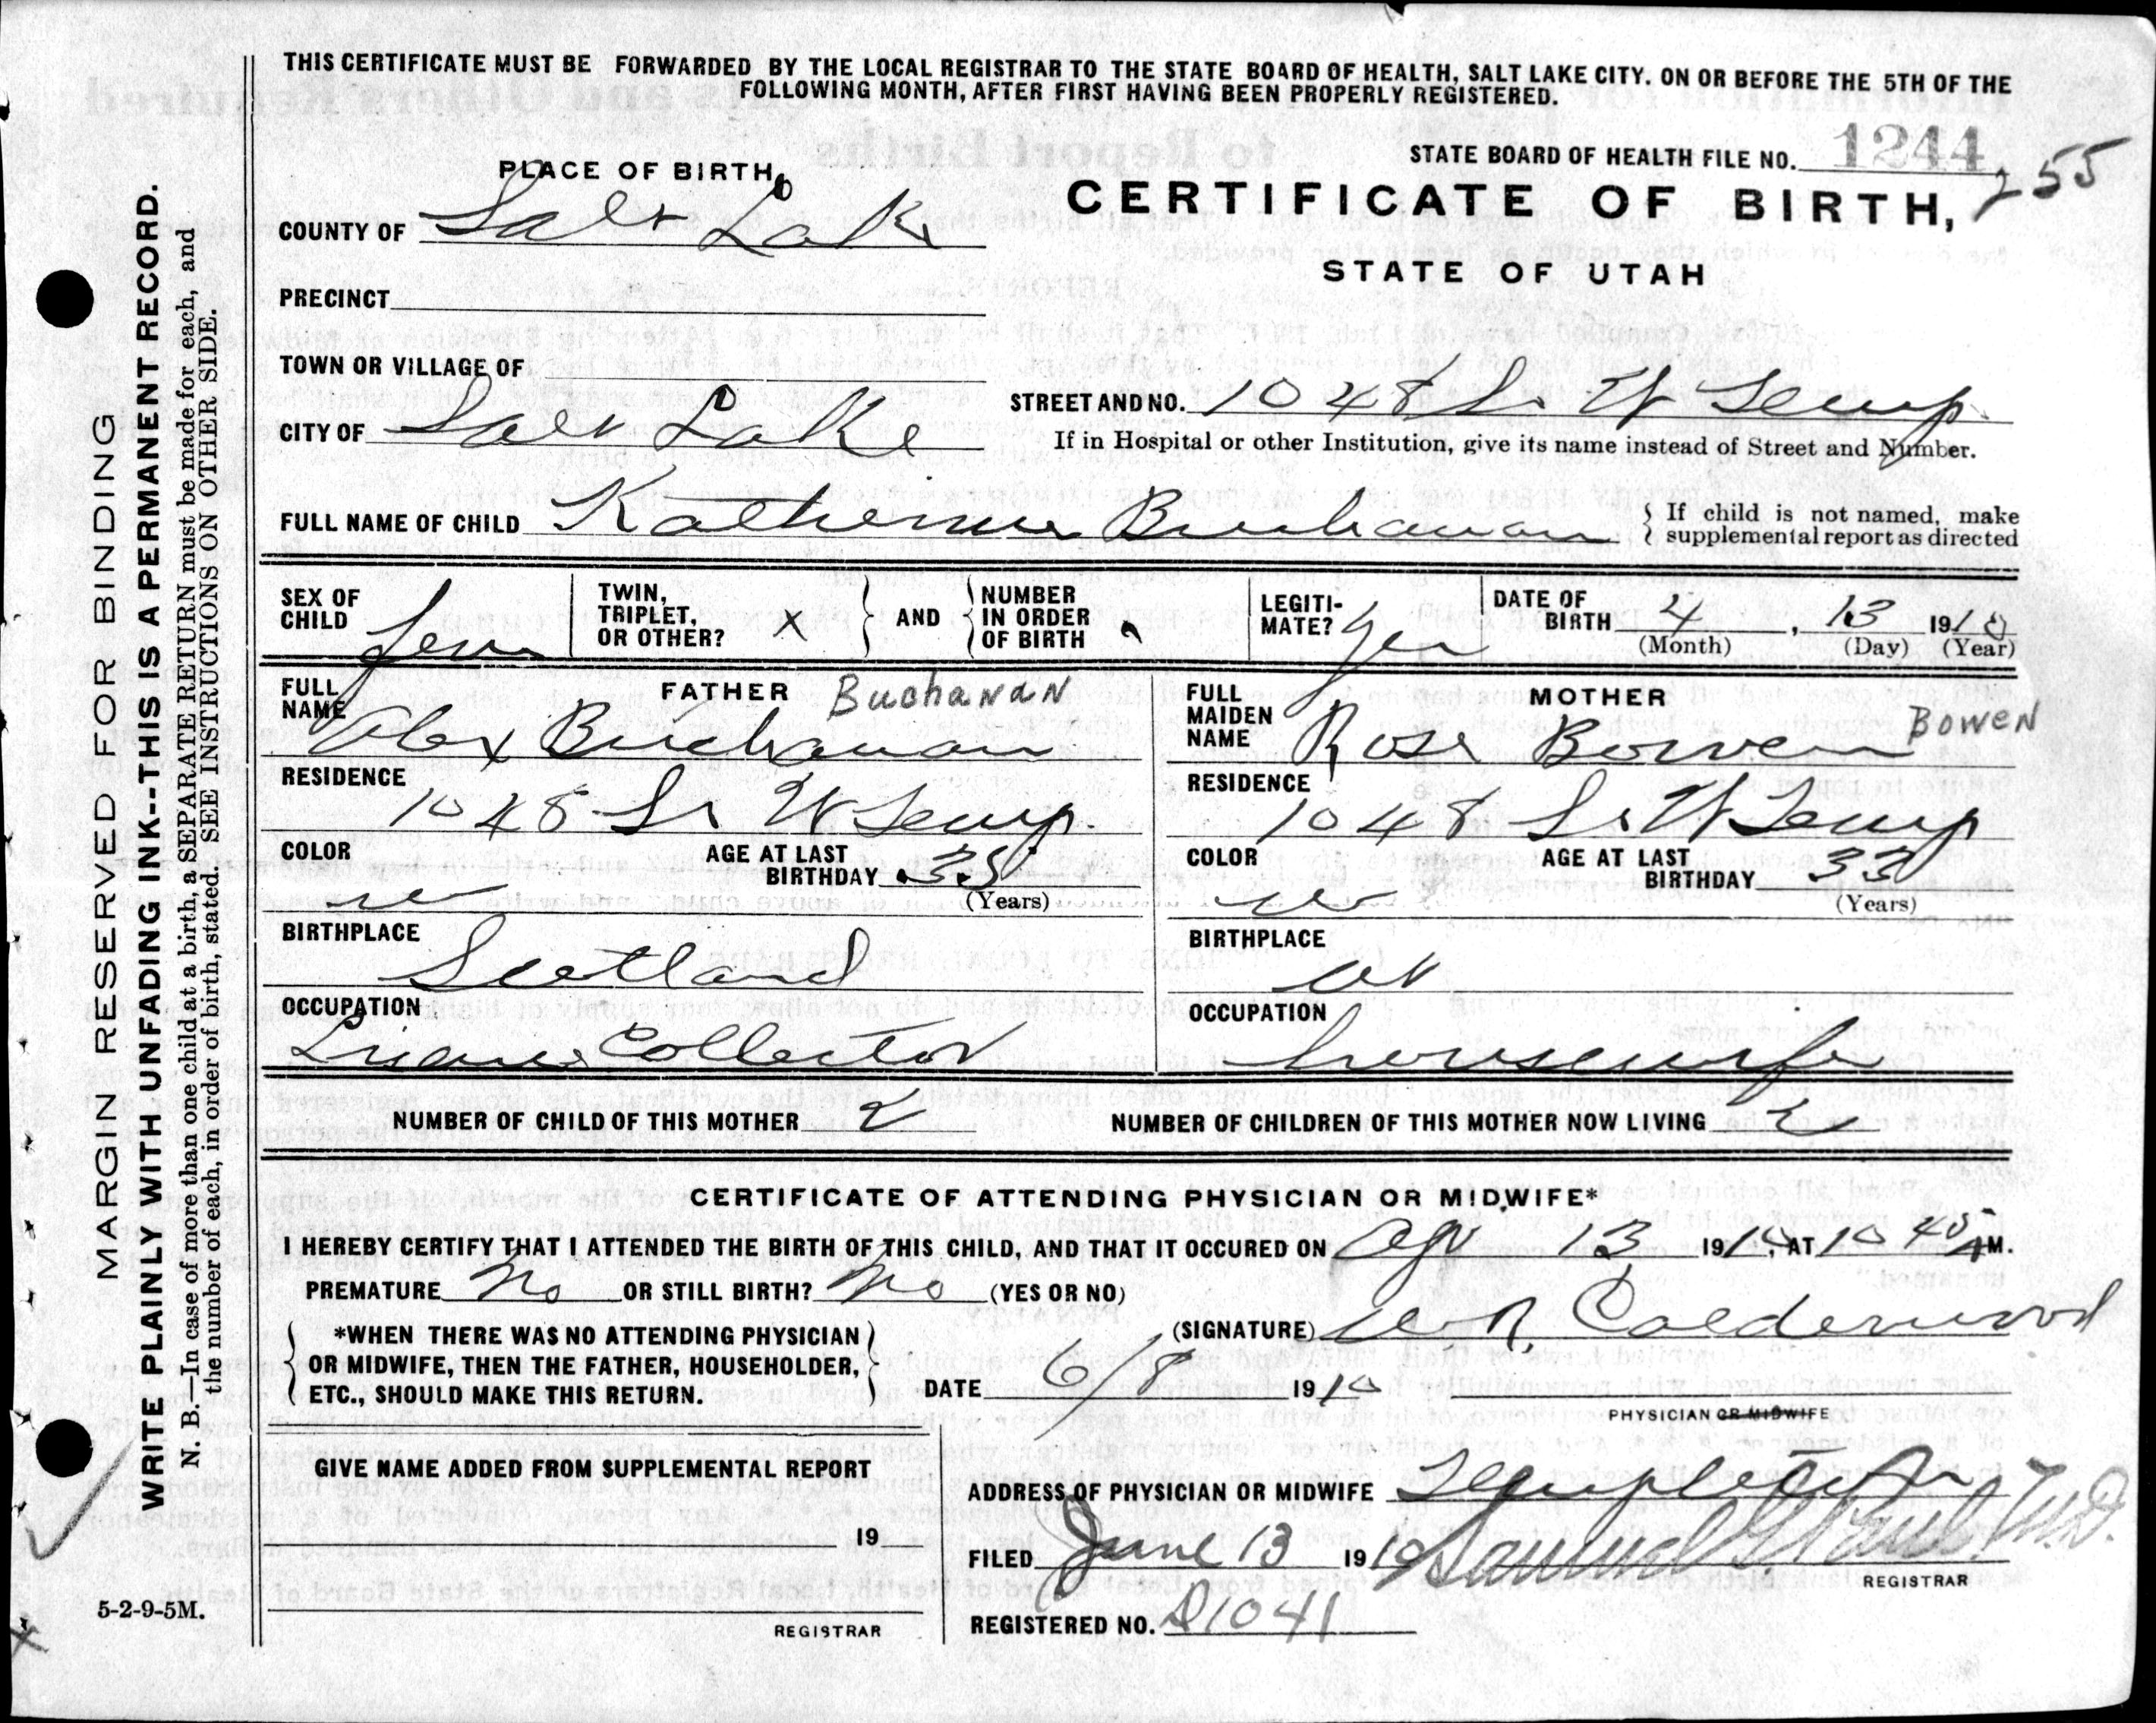 THIS CERTIFICATE MUST BE FORWARDED BY THE LOCAL REGISTRAR TO THE STATE BOARD OF HEALTH, SALT LAKE CITY. ON OR BEFORE THE 5TH OF THE
FOLLOWING MONTH, AFTER FIRST HAVING BEEN PROPERLY REGISTERED.
STATE BOARD OF HEALTH FILE NO. 1244
255
PLACE OF BIRTH,
CERTIFICATE OF BIRTH,
COUNTY OF Salt Lake
STATE OF UTAH
PRECINCT
TOWN OR VILLAGE OF
STREET AND NO. 1048 So W Temp
CITY OF Salt Lake
If in Hospital or other Institution, give its name instead of Street and Number.
FULL NAME OF CHILD Katherine Buchanan
If child is not named, make
supplemental report as directed
SEX OF CHILD Fem
TWIN, TRIPLET, OR OTHER? X
AND
NUMBER IN ORDER OF BIRTH
LEGITI-MATE? Yes
DATE OF BIRTH 4, 13 1910
(Month) (Day) (Year)
FATHER Buchanan
FULL NAME Alex Buchanan
RESIDENCE
1048 So W Temp.
COLOR w
AGE AT LAST BIRTHDAY 35
(Years)
BIRTHPLACE
Scotland
OCCUPATION
Collector
MOTHER
FULL MAIDEN NAME Rose Bowen Bowen
RESIDENCE
1048 So W Temp
COLOR w
AGE AT LAST BIRTHDAY 33
(Years)
BIRTHPLACE
Ut
OCCUPATION
housewife
NUMBER OF CHILD OF THIS MOTHER 2
NUMBER OF CHILDREN OF THIS MOTHER NOW LIVING 2
CERTIFICATE OF ATTENDING PHYSICIAN OR MIDWIFE*
I HEREBY CERTIFY THAT I ATTENDED THE BIRTH OF THIS CHILD, AND THAT IT OCCURED ON Apr 13 1910, AT 10 45 AM.
PREMATURE No OR STILL BIRTH? No (YES OR NO)
(SIGNATURE) W R. Calderwood
*WHEN THERE WAS NO ATTENDING PHYSICIAN
OR MIDWIFE, THEN THE FATHER, HOUSEHOLDER,
ETC., SHOULD MAKE THIS RETURN.
DATE 6/8 1910
PHYSICIAN OR MIDWIFE
GIVE NAME ADDED FROM SUPPLEMENTAL REPORT
19
REGISTRAR
ADDRESS OF PHYSICIAN OR MIDWIFE Templeton
FILED June 13 1910 Samuel G Paul. M.D.
REGISTRAR
REGISTERED NO. D1041
5-2-9-5M.
MARGIN RESERVED FOR BINDING
WRITE PLAINLY WITH UNFADING INK--THIS IS A PERMANENT RECORD.
N. B.—In case of more than one child at a birth, a SEPARATE RETURN must be made for each, and
the number of each, in order of birth, stated. SEE INSTRUCTIONS ON OTHER SIDE.